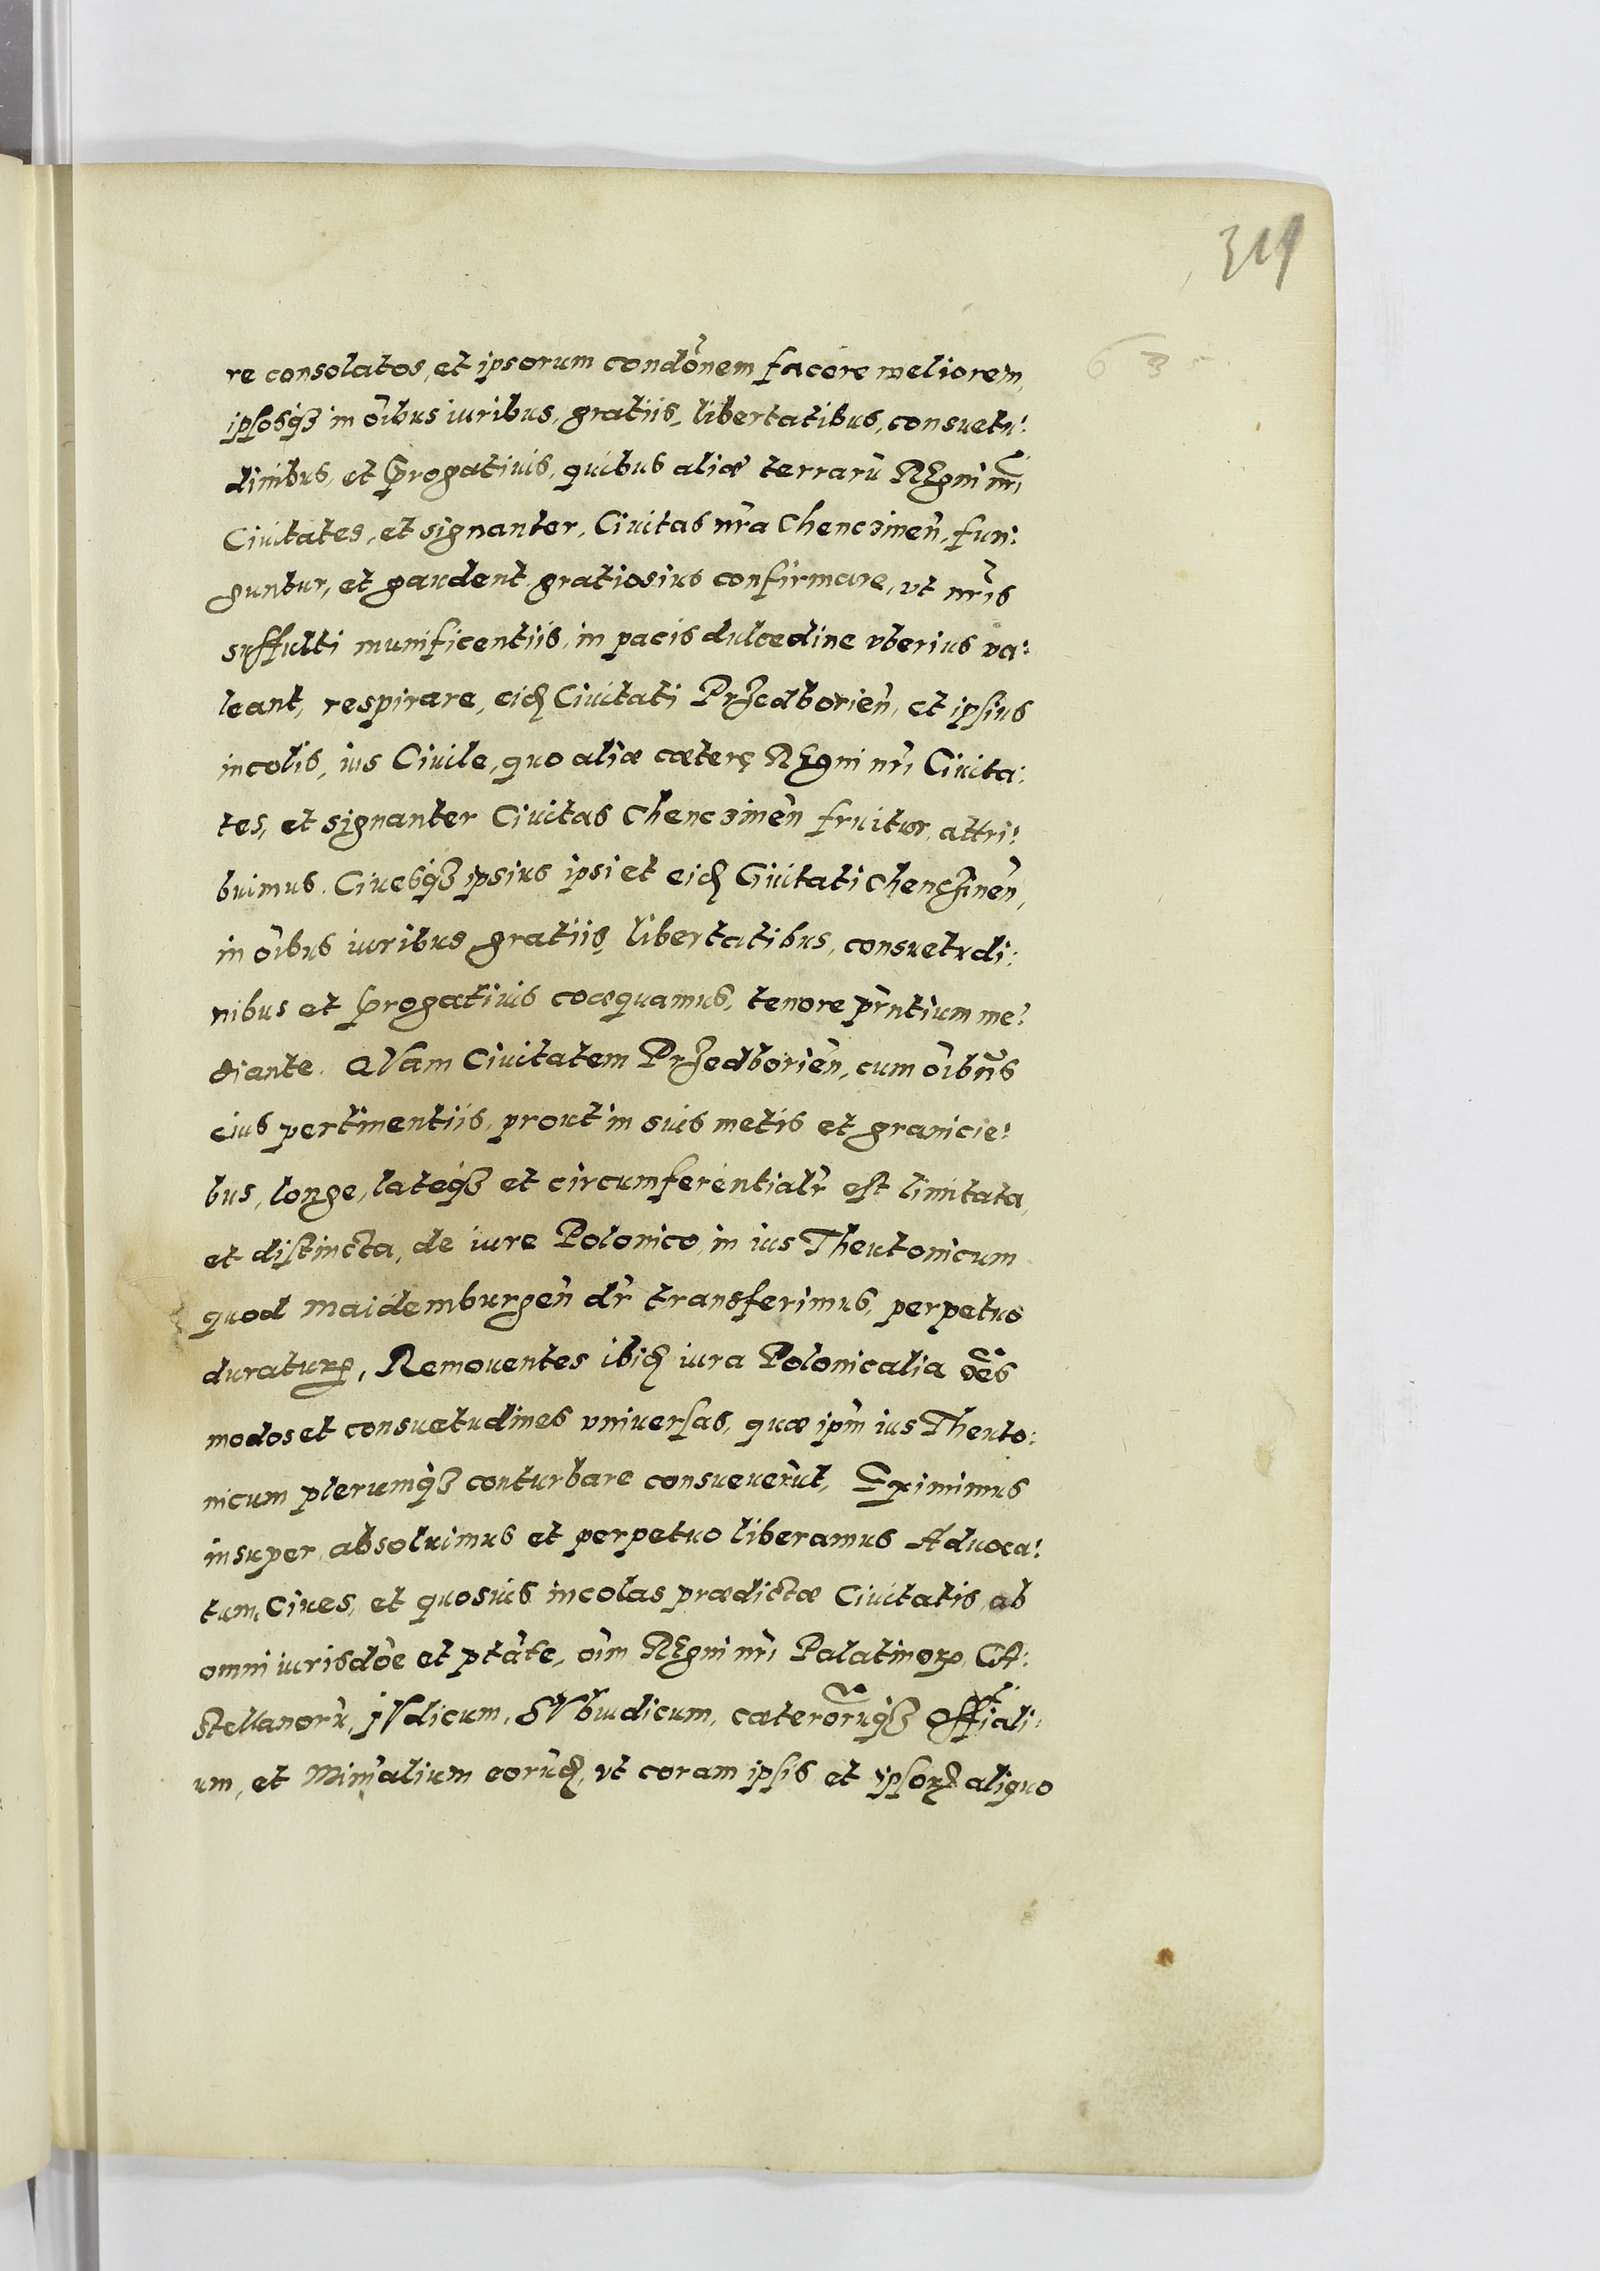 319
63
re consolatos, et ipsorum condo͂nem facere meliorem,
ipsosq́ꝫ in oĩbus iuribus, gratiis, libertatibus, consuetu:
dinibus, et ꝓrogatiuis, quibus aliæ terrarũ REgni nr̃i
Ciuitates, et signanter, Ciuitas nr̃a Chencʒineñ, frun:
guntur, et gaudent gratiosius confirmare, vt nr̃is
suffulti munificentiis, in pacis dulcedine vberius va:
leant, respirare, eidꝫ Ciuitati Prʒedborieñ, et ipsius
incolis, ius Ciuile, quo aliæ cæterę REgni nr̃i Ciuita:
tes, et signanter Ciuitas Chencʒineñ fruitur, attri:
buimus. Ciuesq́ꝫ ipsius ipsi et eidꝫ Ciuitati Chencʒineñ,
in oĩbus iuribus gratiis, libertatibus, consuetudi:
nibus et ꝓrogatiuis coæquamus, tenore pr̃ntium me:
diante. QVam Ciuitatem Prʒedborieñ, cum oĩbus
eius pertinentiis, prout in suis metis et granicie:
bus, longe, lateq́ꝫ et circumferentialr̃ est limitata,
et distincta, de iure Polonico in ius Theutonicum
quod Maidemburgeñ dr̃ transferimus, perpetuo
duraturꝝ, Remouentes ibidꝫ iura Polonicalia oẽs
modos et consuetudines vniuersas, quæ ipm̃ ius Theuto:
nicum plerumq́ꝫ conturbare consueuerũt, Eximimus
insuper absoluimus et perpetuo liberamus Aduoca:
tum, Ciues, et quosuis incolas prædictæ Ciuitatis, ab
omni iurisdõe et ptãte, oĩm REgni nr̃i Palatinorꝝ, CA:
stellanorũ, jVdicum, SVbiudicum, cæterorũq́ꝫ Offĩali:
um, et Minĩalium eorũdꝫ, vt coram ipsis et ipsorꝝ aliquo